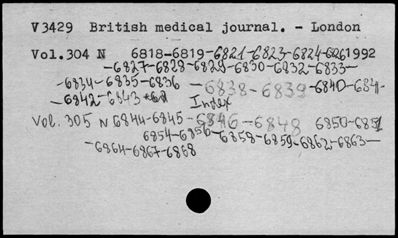 V3429 British medical journal. - London
Vol.304 N 6818-6819-6821-6823-6824-6826 1992
-6827-6828-6829-6830-6832-6833-
-6834-6835-6836 -6838-6839-6840-6841-
-6842-6843 Index
Vol. 305 N 6844-6845-6846-6848 6850-6851
6854-6856-6858-6859-6862-6863-
-6864-6867-6868